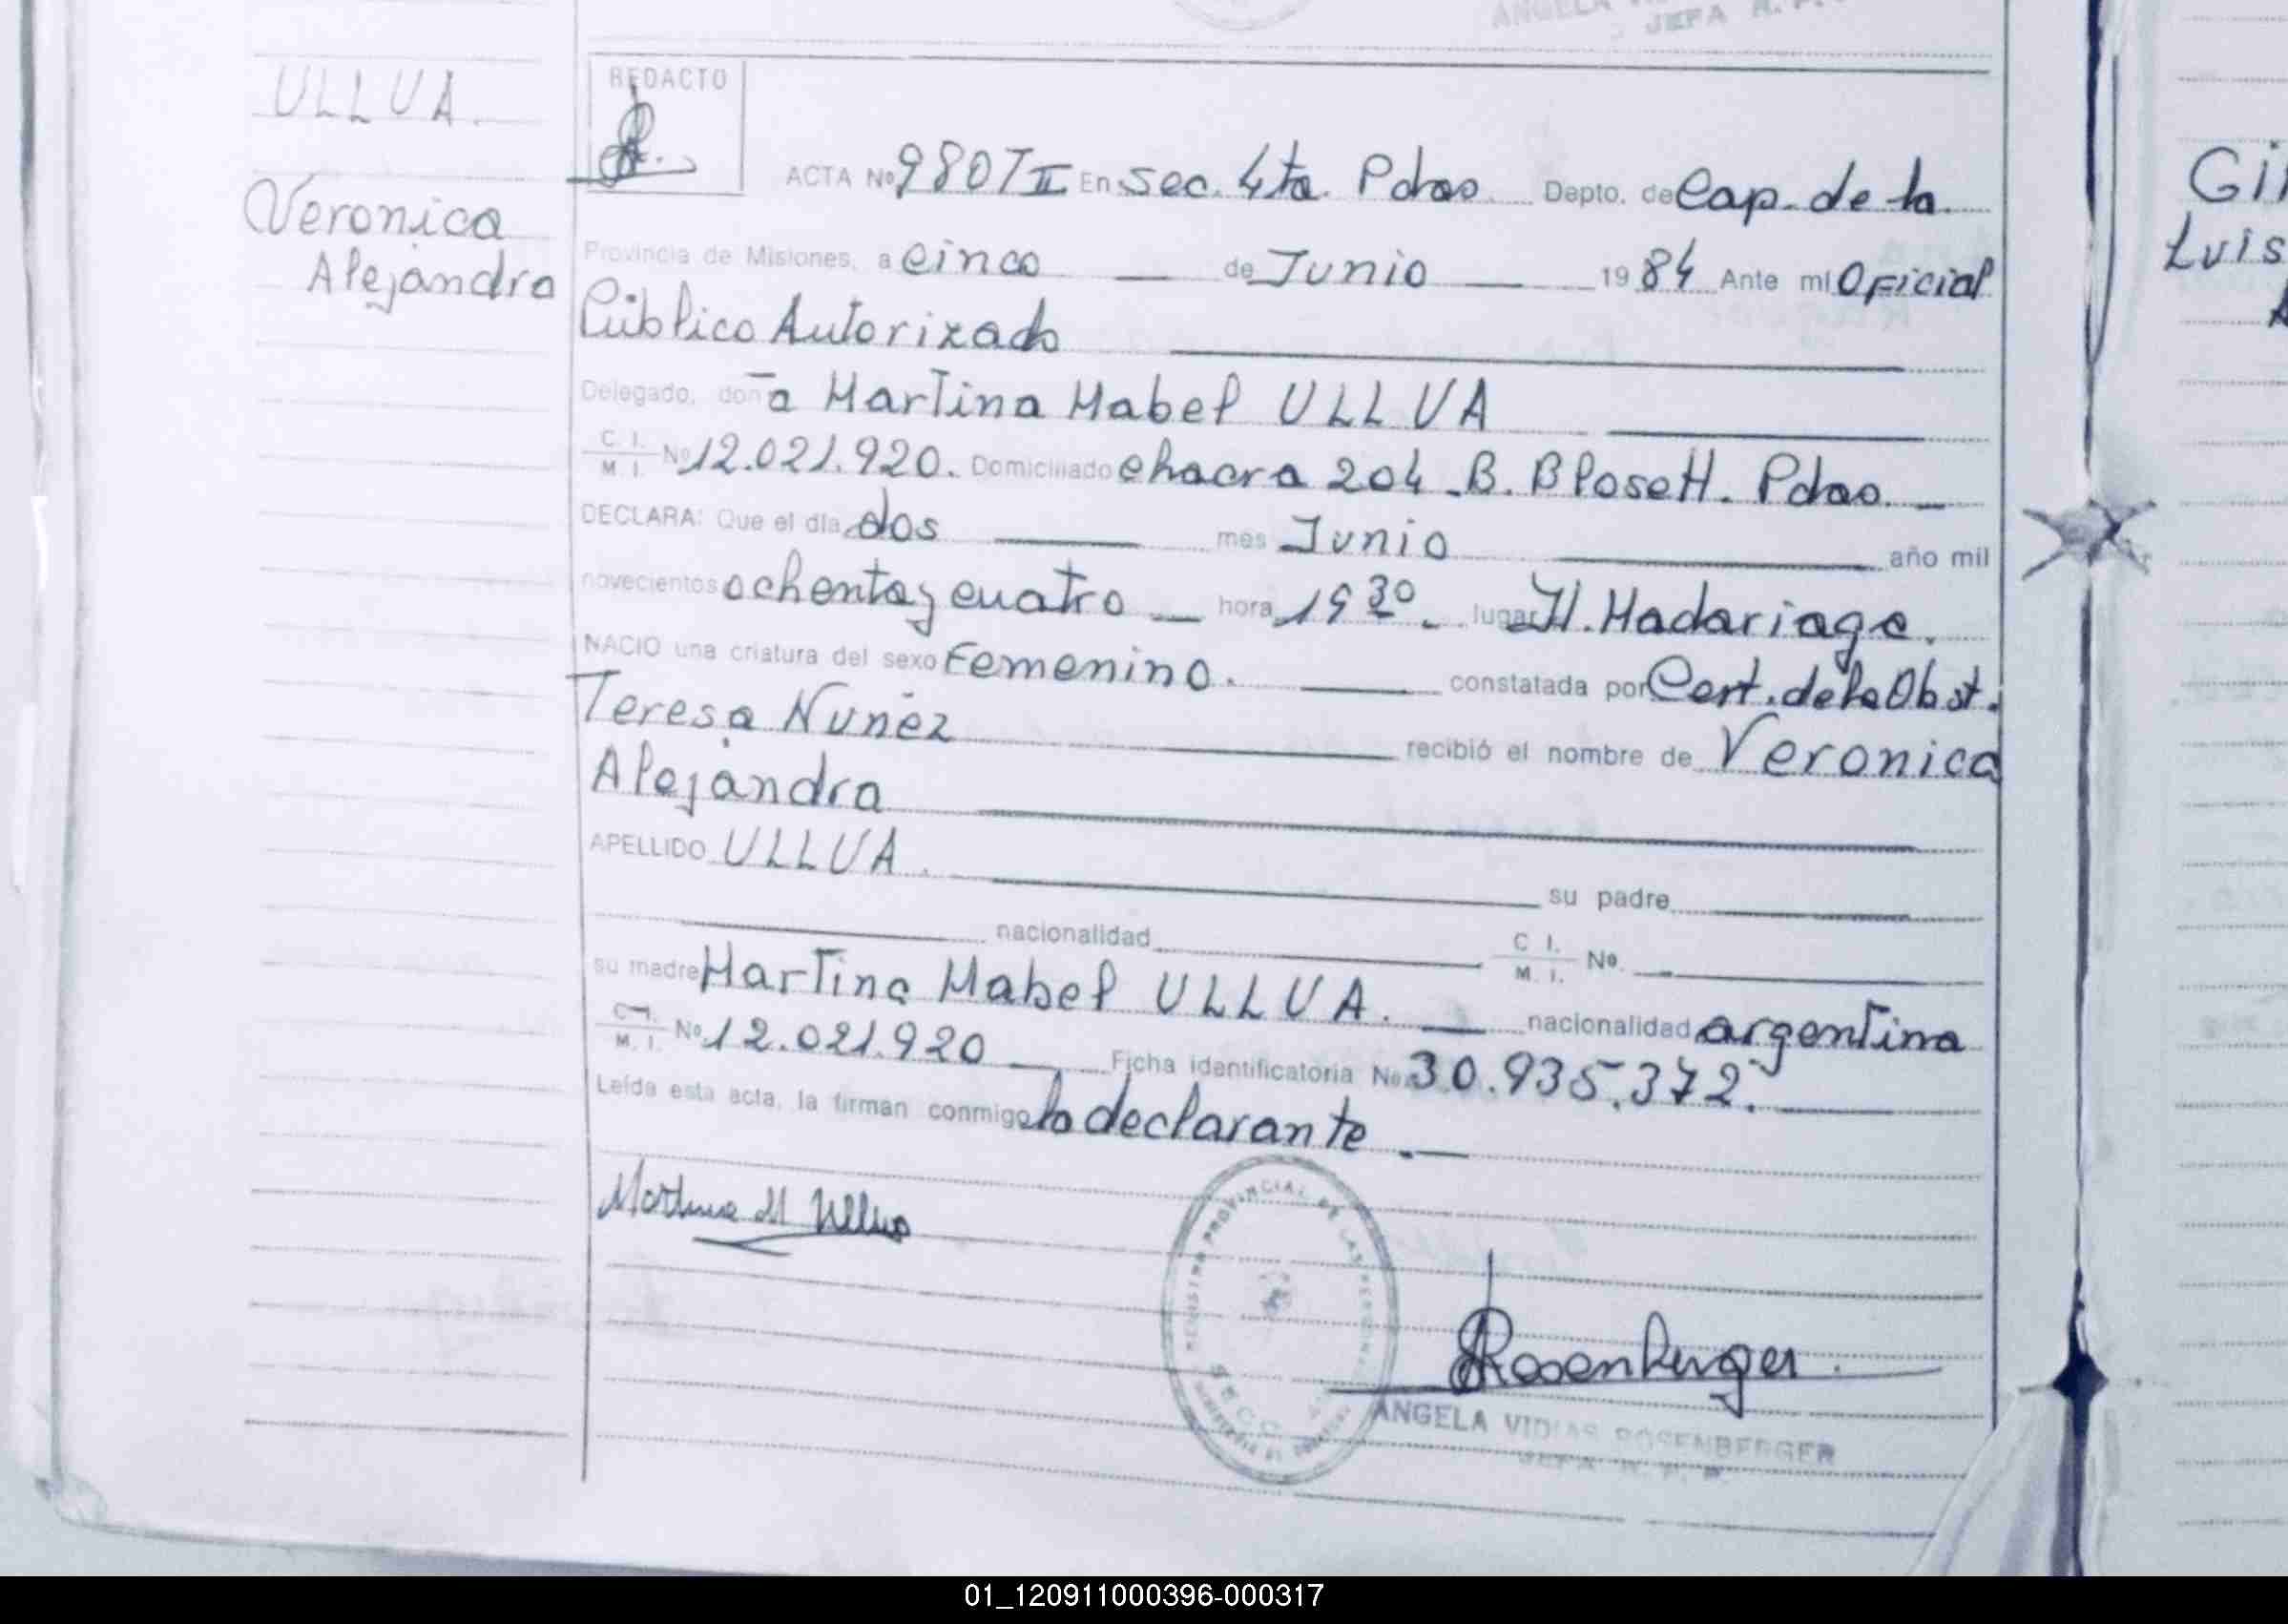 ANGELA
JEFA R. P.
ULLUA.
Veronica
Alejandra
REDACTO
ACTA Nº 980 T II En Sec. 4ta. Pdas. Depto. de Cap. de la
Provincia de Misiones, a cinco de Junio 1984 Ante mi Oficial
Público Autorizado
Delegado, doña Martina Mabel ULLUA
C. I.
M. I. Nº 12.021.920. Domiciliado chacra 204 - B. B Poset. Pdas.
DECLARA: Que el día dos mes Junio año mil
novecientos ochenta y cuatro hora 19 30 lugar H. Madariaga.
NACIO una criatura del sexo Femenino. constatada por Cert. de la Obst.
Teresa Nuñez recibió el nombre de Veronica
Alejandra
APELLIDO ULLUA. su padre
nacionalidad C I. M. I. Nº
su madre Martina Mabel ULLUA. nacionalidad argentina
C. I. M. I. Nº 12.021.920 Ficha identificatoria Nº 30.935.372.
Leída esta acta, la firman conmigo la declarante.
Martina M Ullua
REGISTRO PROVINCIAL DE LAS PERSONAS
SECC
Rosenberger.
ANGELA VIDIAS ROSENBERGER
JEFA R. P. P.
Luis
01_120911000396-000317